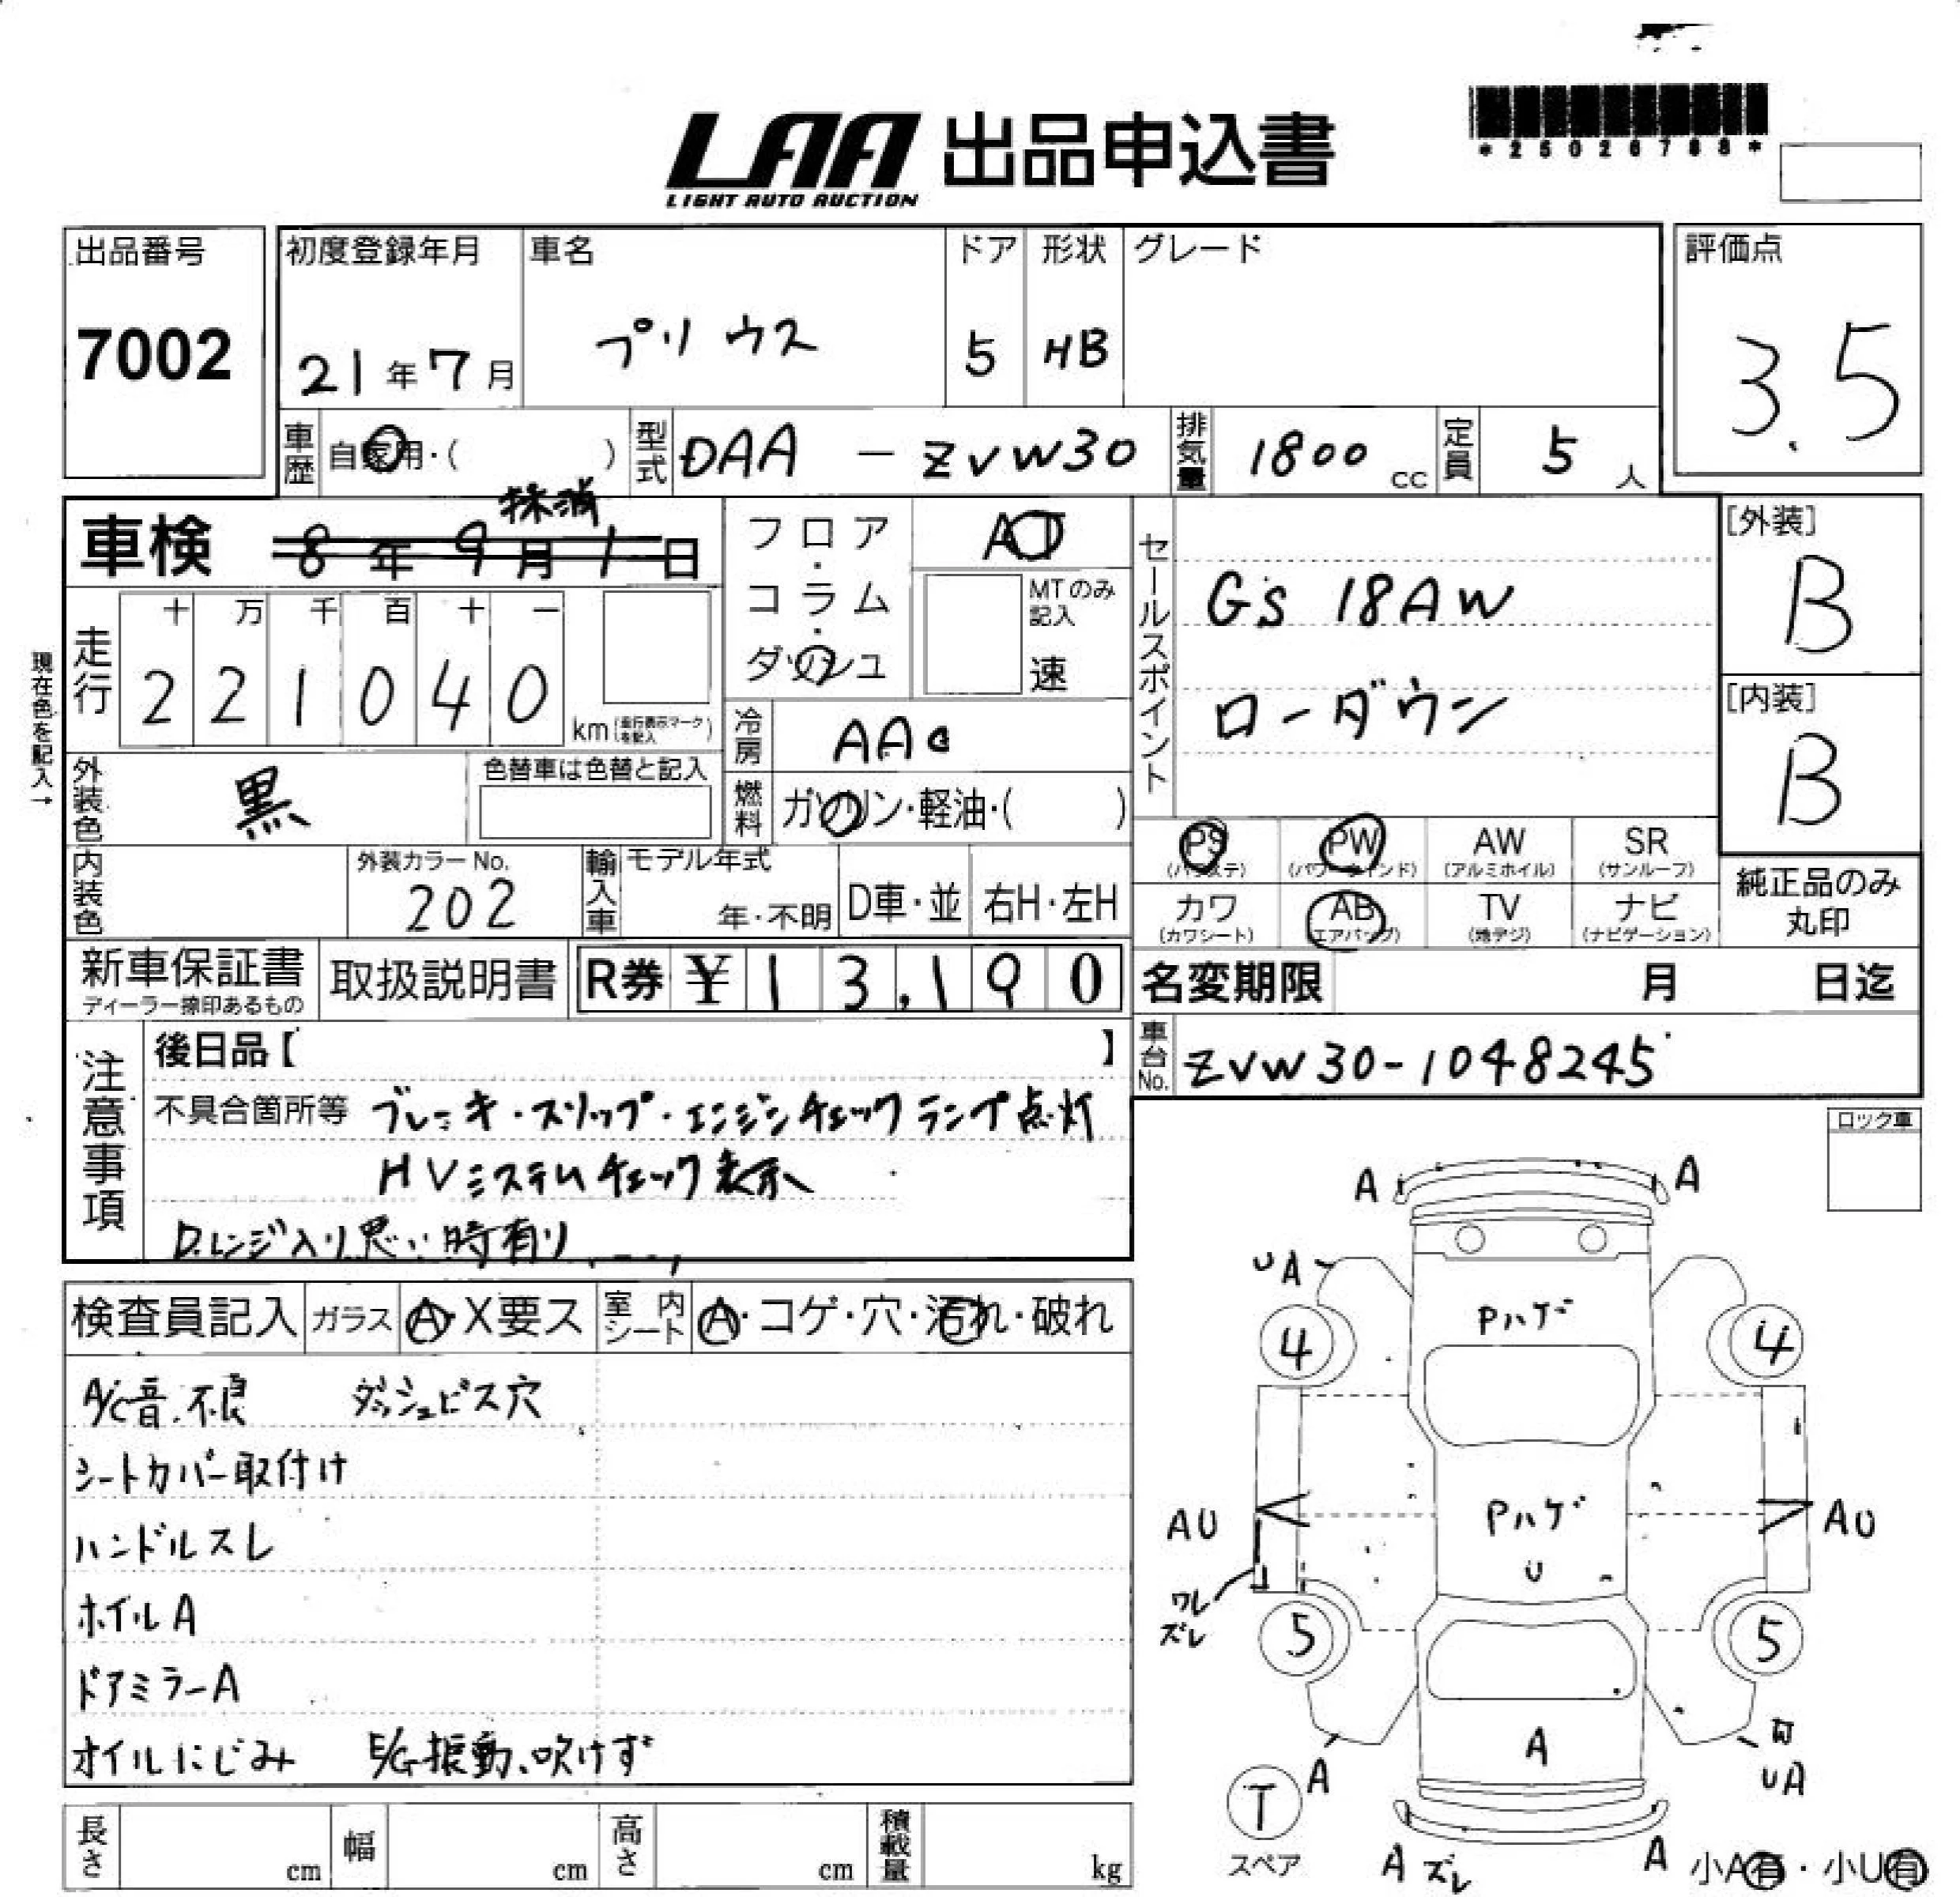 LAA 出品申込書
LIGHT AUTO AUCTION
*25026788*
出品番号
7002
初度登録年月
21年7月
車名
プリウス
ドア
5
形状
HB
グレード
評価点
3.5
車歴 自家用・( )
型式 DAA - ZVW30
排気量 1800 cc
定員 5 人
抹消
車検 8年9月1日
走行
十 万 千 百 十 一
2 2 1 0 4 0
km (走行表示マークを記入)
現在色を記入→
フロア・コラム・ダッシュ
AT
MTのみ記入
速
冷房 AAC
燃料 ガソリン・軽油・( )
セールスポイント
GS 18AW
ローダウン
[外装]
B
[内装]
B
外装色 黒
色替車は色替と記入
内装色
外装カラーNo.
202
輸入車 モデル年式
年・不明 D車・並 右H・左H
PS (パワステ)
PW (パワーウインド)
AW (アルミホイル)
SR (サンルーフ)
カワ (カワシート)
AB (エアバッグ)
TV (地デジ)
ナビ (ナビゲーション)
純正品のみ
丸印
新車保証書
ディーラー捺印あるもの
取扱説明書
R券 ¥13,190
名変期限 月 日迄
車台No. ZVW30-1048245
注意事項
後日品【 】
不具合箇所等 ブレーキ・スリップ・エンジンチェックランプ点灯
HVシステムチェック表示
Dレンジ入り悪い時有り
ロック車
検査員記入 ガラス A・X要ス 室内シート A・コゲ・穴・汚れ・破れ
A/C音、不良 ダッシュビス穴
シートカバー取付け
ハンドルスレ
ホイルA
ドアミラーA
オイルにじみ E/G振動、吹けず
長さ cm 幅 cm 高さ cm 積載量 kg
A A
UA
Pハゲ
4 4
AU Pハゲ AU
U
ワレ
ズレ
5 5
A
A UA
T
スペア
A ズレ A
小A有・小U有